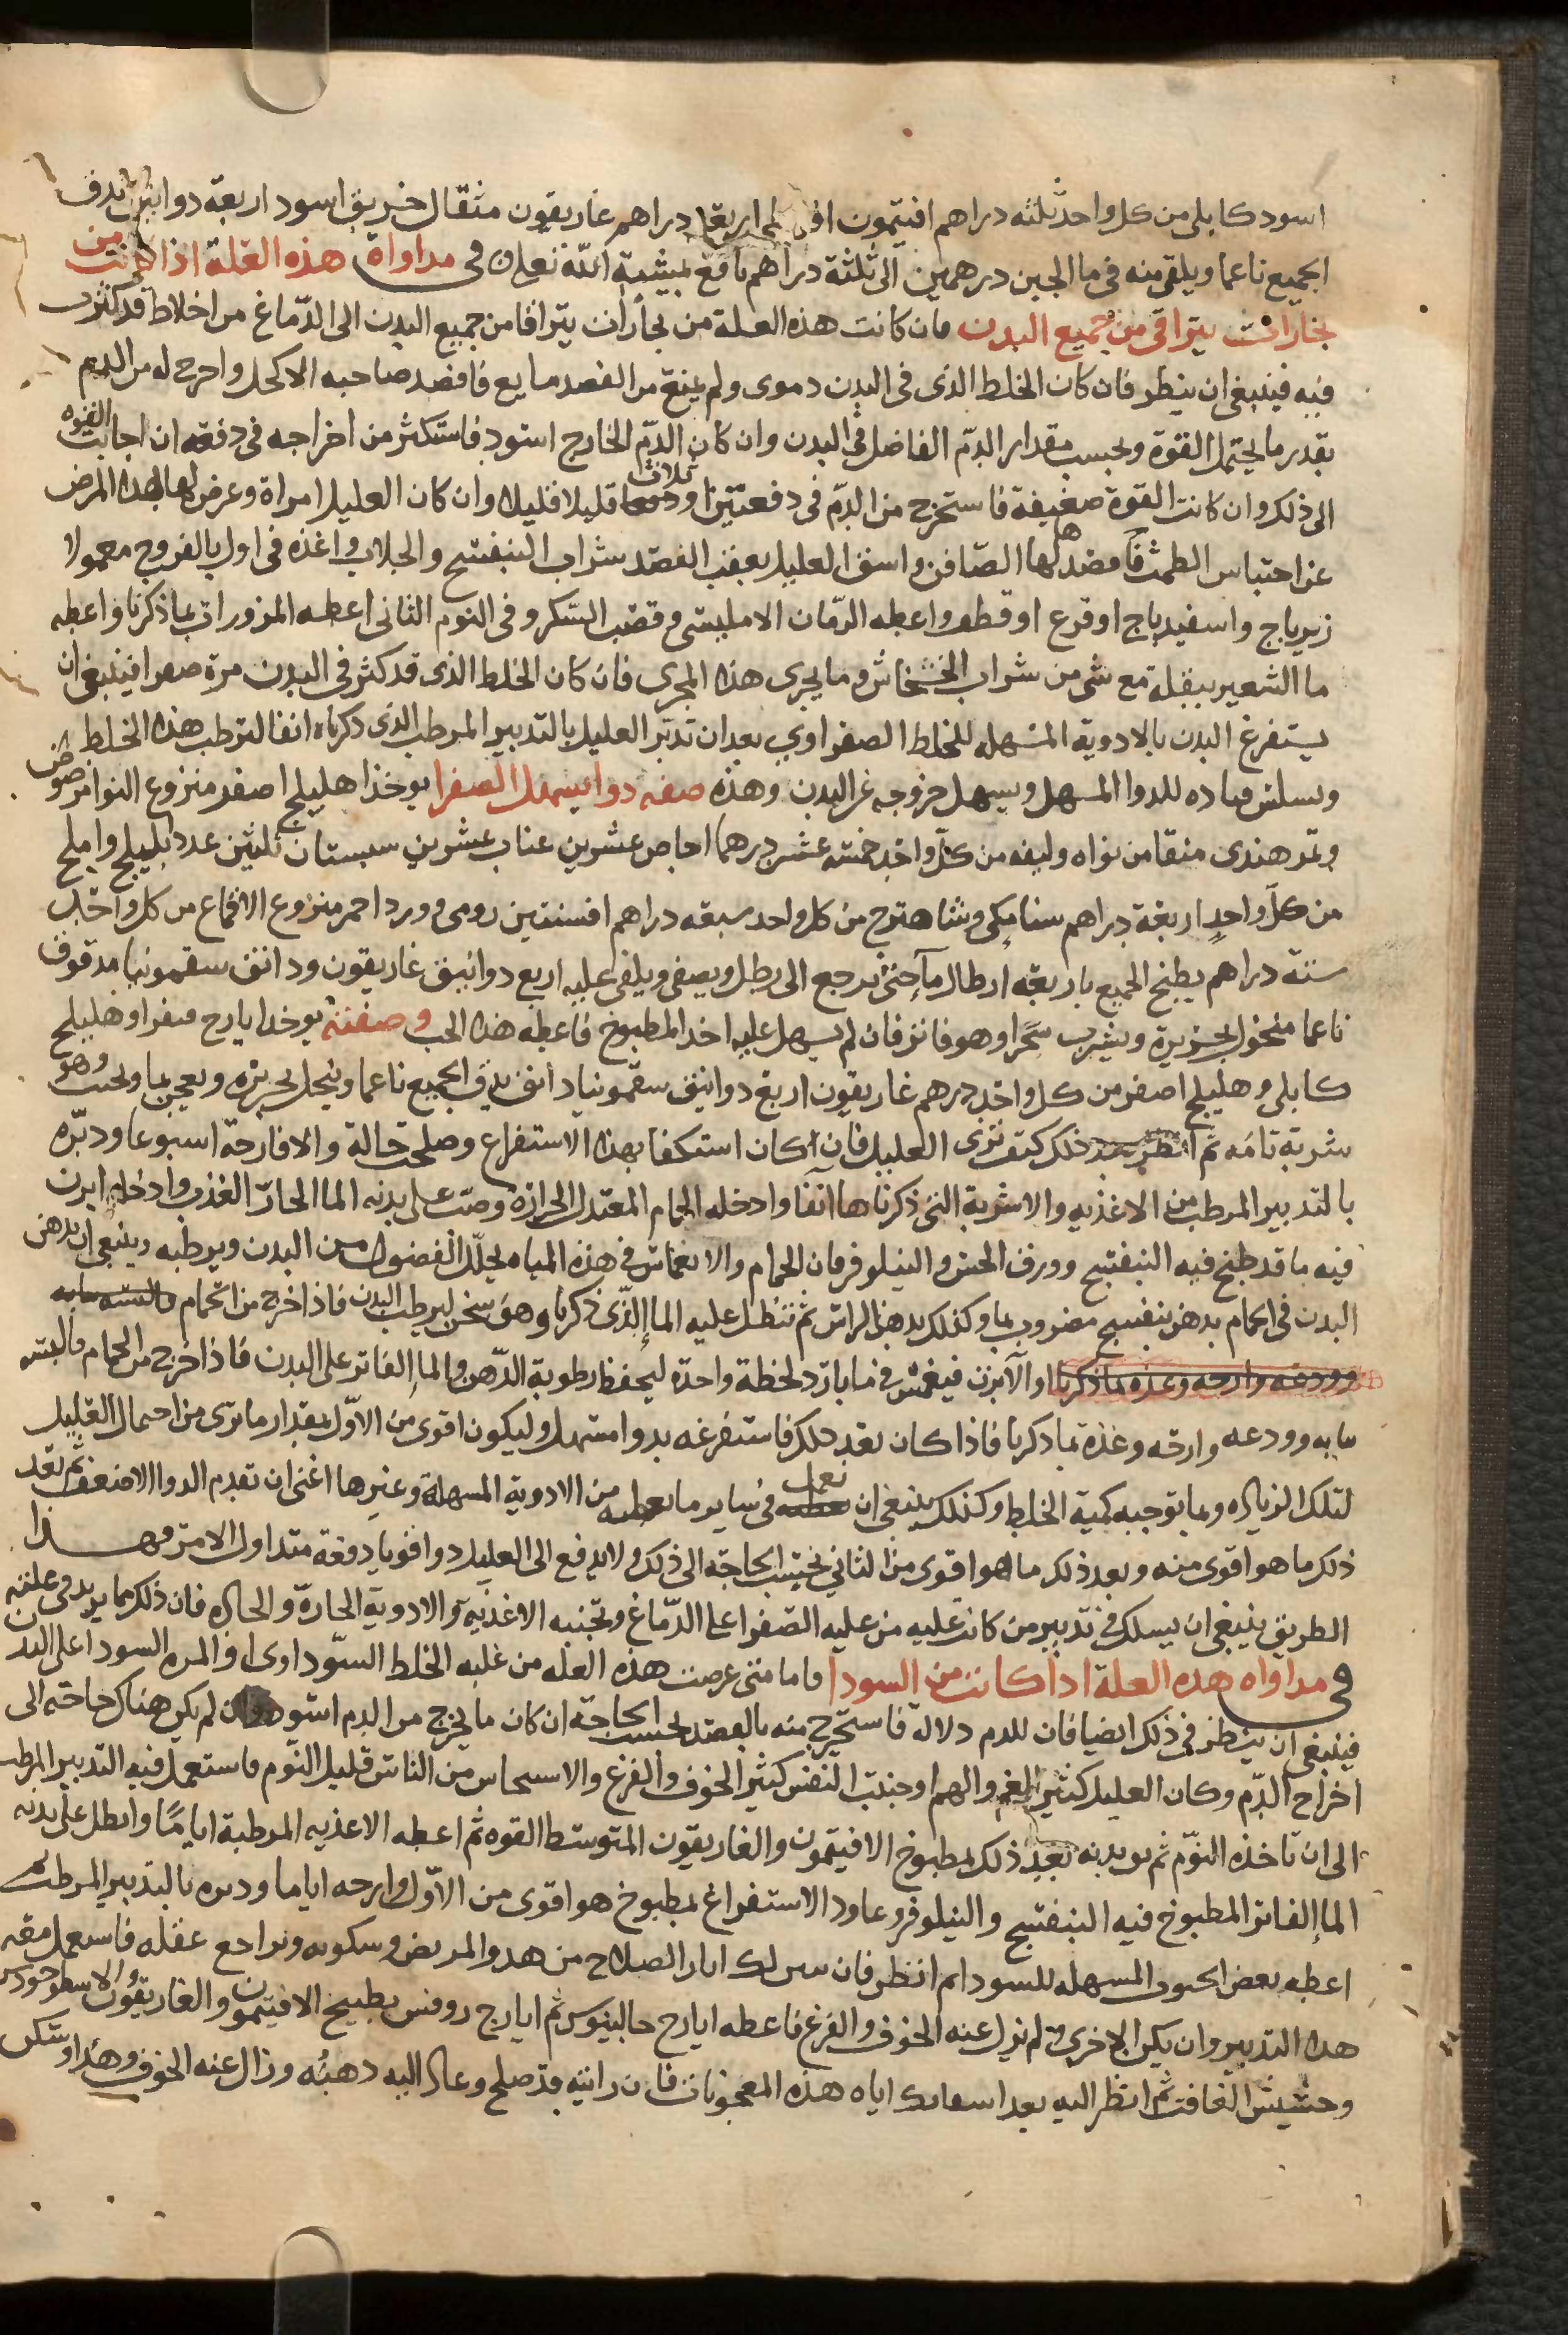 اسود كابلى من كل واحد ثلثه دراهم افتيمون اربعة دراهم غاريقون مثقال خربق اسود اربعة دوانيق يدق
الجميع ناعما ويلقى منه فى ما الجبن درهمين الى ثلثة دراهم نافع بمشية الله تعلى فى مداواة هذه العلة اذا كانت من
بخارات يتراقى من جميع البدن فان كانت هذه العلة من بخارات يتراقا من جميع البدن الى الدماغ من اخلاط قد كثرت
فيه فينبغى ان ينظر فان كان الخلط الذى فى البدن دموى ولم يمنع من الفصد مايع فافصد صاحبه الاكحل واخرج له من الدم
بقدر ما يحتمل القوة وبحسب مقدار الدم الفاضل فى البدن وان كان الدم الخارج اسود فاستكثر من اخراجه فى دفعه ان اجابت القوه
الى ذلك وان كانت القوة ضعيفة فاستخرج من الدم فى دفعتين او ثلاث قليلا قليلا وان كان العليل امراة وعرض لها هذا المرض
عن احتباس الطمث فافصد لها الصافن واسق العليل بعقب الفصد شراب البنفسج والجلاب واغذه فى اول بالفروج معمولا
زيرباج واسفيدباج او قرع او قطف واعطه الرمان الامليسى وقصب السكر وفى اليوم الثانى اعطه المزورات بما ذكرنا واعطه
ما الشعير ببقلة مع شى من شراب الخشخاش وما يجرى هذا المجرى فان كان الخلط الذى قد كثر فى البدن مرة صفرا فينبغى ان
يستفرغ البدن بالادوية المسهله للخلط الصفراوي بعد ان تدبر العليل بالتدبير المرطب الذى ذكرناه انفا لترطب هذا الخلط
ويسلس قياده للدوا المسهل ويسهل خروجه عن البدن وهذه صفه دوا يسهل الصفرا يوخذ اهليلج اصفر منزوع النوا مرضوض
وتمر هندى منقا من نواه وليفه من كل واحد خمسه عشر درهما اجاص عشرين عناب عشرين سبستان ثلثين عدد بليلج واملج
من كل واحد اربعة دراهم سنا مكى وشاهترج من كل واحد سبعه دراهم افسنتين رومى وورد احمر منزوع الاقماع من كل واحد
ستة دراهم يطبخ الجميع باربعه ارطال ما حتى يرجع الى رطل ويصفى ويلقى عليه اربع دوانيق غاريقون ودانق سقمونيا مدقوق
ناعما منخول بحريرة ويشرب سحرا وهو فاتر فان لم يسهل عليه اخذ المطبوخ فاعطه هذا الحب وصفته يوخذ ايارج فيقرا وهليلج
كابلى وهليلج اصفر من كل واحد درهم غاريقون اربع دوانيق سقمونيا دانق يدق الجميع ناعما وينخل بحريره ويعجن بما ويحبب وهو
شربة تامه ثم انظر بعد ذلك كيف ترى العليل فان كان استكفا بهذا الاستفراع وصلحت حالة والا فارحة اسبوعا ودبره
بالتدبير المرطب من الاغذيه والاشربة التى ذكرناها انفا وادخله الحمام المعتدل الحرارة وصب على بدنه الما الحار العذب وادخله ابزن
فيه ما قد طبخ فيه البنفسج وورق الخس والنيلوفر فان الحمام والانغماس فى هذه المياه يحلل الفضول من البدن ويرطبه وينبغى ان يدهن
البدن فى الحمام بدهن بنفسج مضروب بما وكذلك يدهن الراس ثم تنطل عليه الما الذى ذكرنا وهو سخن ليرطب البدن فاذا خرج من الحمام
او الابزن فيغمس فى ما بارد لحظة واحدة ليحفظ رطوبة الدهن والما الفاتر على البدن فاذا خرج من الحمام فالبسه
ثيابه وودعه وارحه وغذه بما ذكرنا فاذا كان بعد ذلك فاستفرغه بدوا مسهل وليكون اقوى من الاول بمقدار ما ترى من احتمال العليل
لتلك الزياده وما توجبه كمية الخلط وكذلك ينبغى ان تعمل فى ساير ما تعطيه من الادوية المسهلة وغيرها اعنى ان تقدم الدوا الاضعف ثم بعد
ذلك ما هو اقوى منه وبعد ذلك ما هو اقوى من الثانى بحسب الحاجة الى ذلك ولا يدفع الى العليل دوا قويا دفعة منذ اول الامر فهذا
الطريق ينبغى ان يسلك فى تدبير من كانت عليه من غلبة الصفرا على الدماغ وتجنبه الاغذيه والادوية الحارة والحاده فان ذلك مما يزيد فى علته
فى مداواه هذه العلة اذا كانت من السودا فاما متى عرضت هذه العله من غلبه الخلط السوداوى او المره السودا على البدن
فينبغى ان ينظر فى ذلك ايضا فان للدم دلاله فاستخرج منه بالفصد بحسب الحاجة ان كان ما يخرج من الدم اسود وان لم يكن هناك حاجة الى
اخراج الدم وكان العليل كثير الغم والهم او خبيث النفس كثير الخوف والفزع والاستيحاش من الناس قليل النوم فاستعمل فيه التدبير المرطب
الى ان تاخذه النوم ثم بعد ذلك بمطبوخ الافتيمون والغاريقون المتوسط القوه ثم اعطه الاغذيه المرطبة اياما وانطل على بدنه
الما الفاتر المطبوخ فيه البنفسج والنيلوفر وعاود الاستفراغ بمطبوخ هو اقوى من الاول وارحه اياما ودبره بالتدبير المرطب ثم
اعطه بعض الحبوب المسهله للسودا ثم انظر فان تبين لك اثار الصلاح من هدو المريض وسكونه وتراجع عقله فاستعمل معه
هذا التدبير وان يكن الاخرى ولم تزل عنه الخوف والفزع فاعطه ايارج جالينوس ثم ايارج روفس بطبيخ الافتيمون والغاريقون والاسطوخودوس
وحشيش الغافت ثم انظر اليه بعد اسقائك اياه هذه المعجونات فان رايته قد صلح وعاد اليه ذهنه وزال عنه الخوف وهدا وسكن